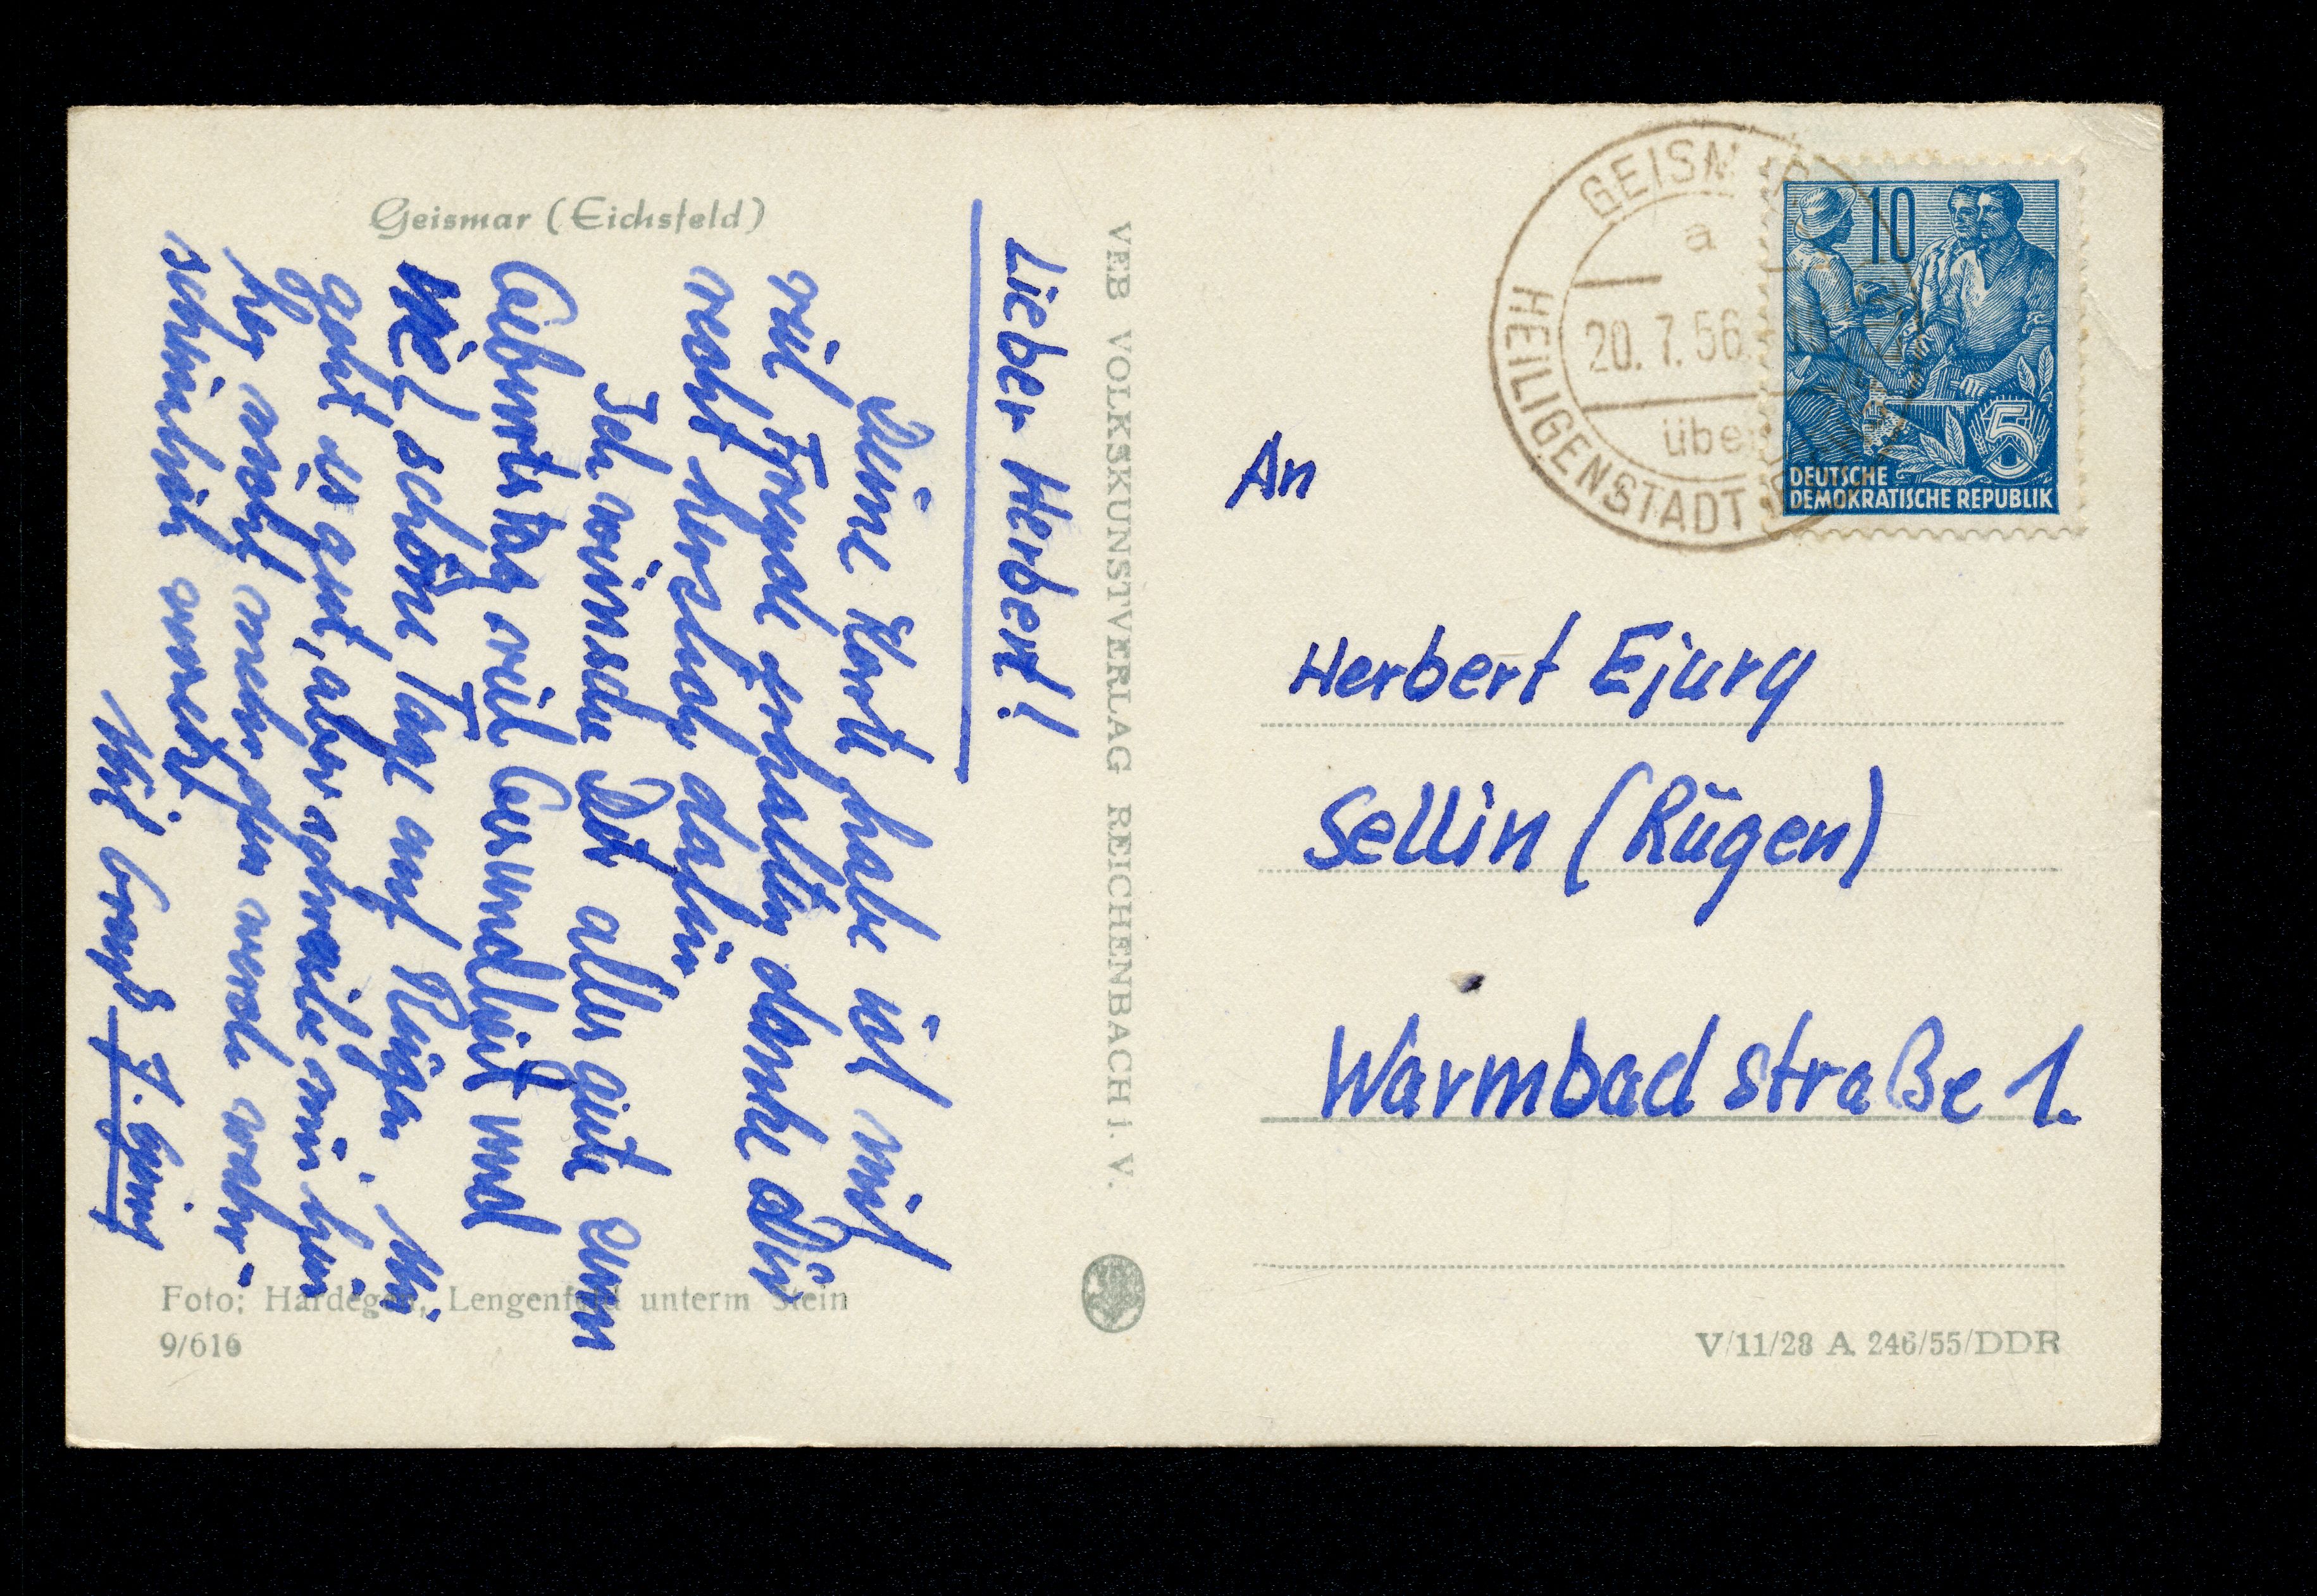 Geismar (Eichsfeld)
Lieber Herbert!
Deine Karte habe ich mit
viel Freude erhalten danke Dir
recht herzlich dafür.
Ich wünsche Dir alles gute zum
Geburtstag viel Gesundheit und
viel schöne Tage auf Rügen. Mir
geht es gut, aber schreibe mir hier
her nicht mehr
schreiben
Mit Gruß
Foto: Hardegen, Lengenfeld unterm Stein
9/616
VEB VOLKSKUNSTVERLAG REICHENBACH I. V.
GEISMAR
a
20.7.56
über
HEILIGENSTADT
10
5
DEUTSCHE
DEMOKRATISCHE REPUBLIK
An
Herbert Ejury
Sellin (Rügen)
Warmbadstraße 1.
V/11/28 A 246/55/DDR